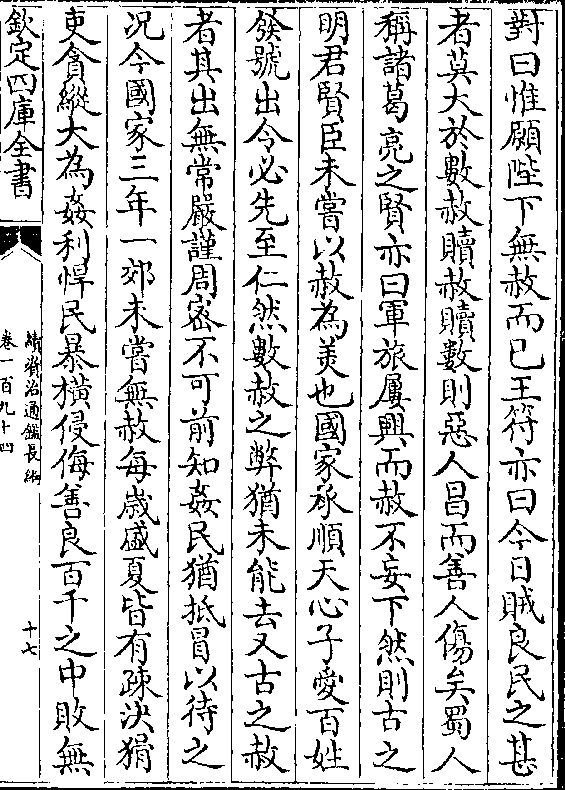 對曰惟願陛下無赦而已王符亦曰今日賊良民之甚
者莫大於數赦贖赦贖數則惡人昌而善人傷矣蜀人
稱諸葛亮之賢亦曰軍旅屢興而赦不妄下然則古之
明君賢臣未嘗以赦為美也國家承順天心子愛百姓
發號出令必先至仁然數赦之弊猶未能去又古之赦
者其出無常嚴謹周宻不可前知姦民猶抵冒以待之
况今國家三年一郊未嘗無赦每歳盛夏皆有疎決猾
吏貪縱大為姦利悍民暴横侵侮善良百千之中敗無
欽定四庫全書
續資治通鑑長編
卷一百九十四
十七